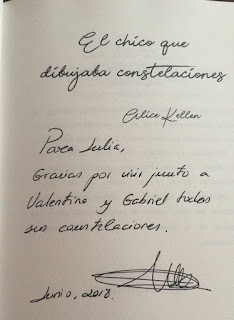 El chico que
dibujaba constelaciones
Alice Kellen
Para Julia,
Gracias por vivir junto a
Valentina y Gabriel todas
sus constelaciones.
Junio, 2018.